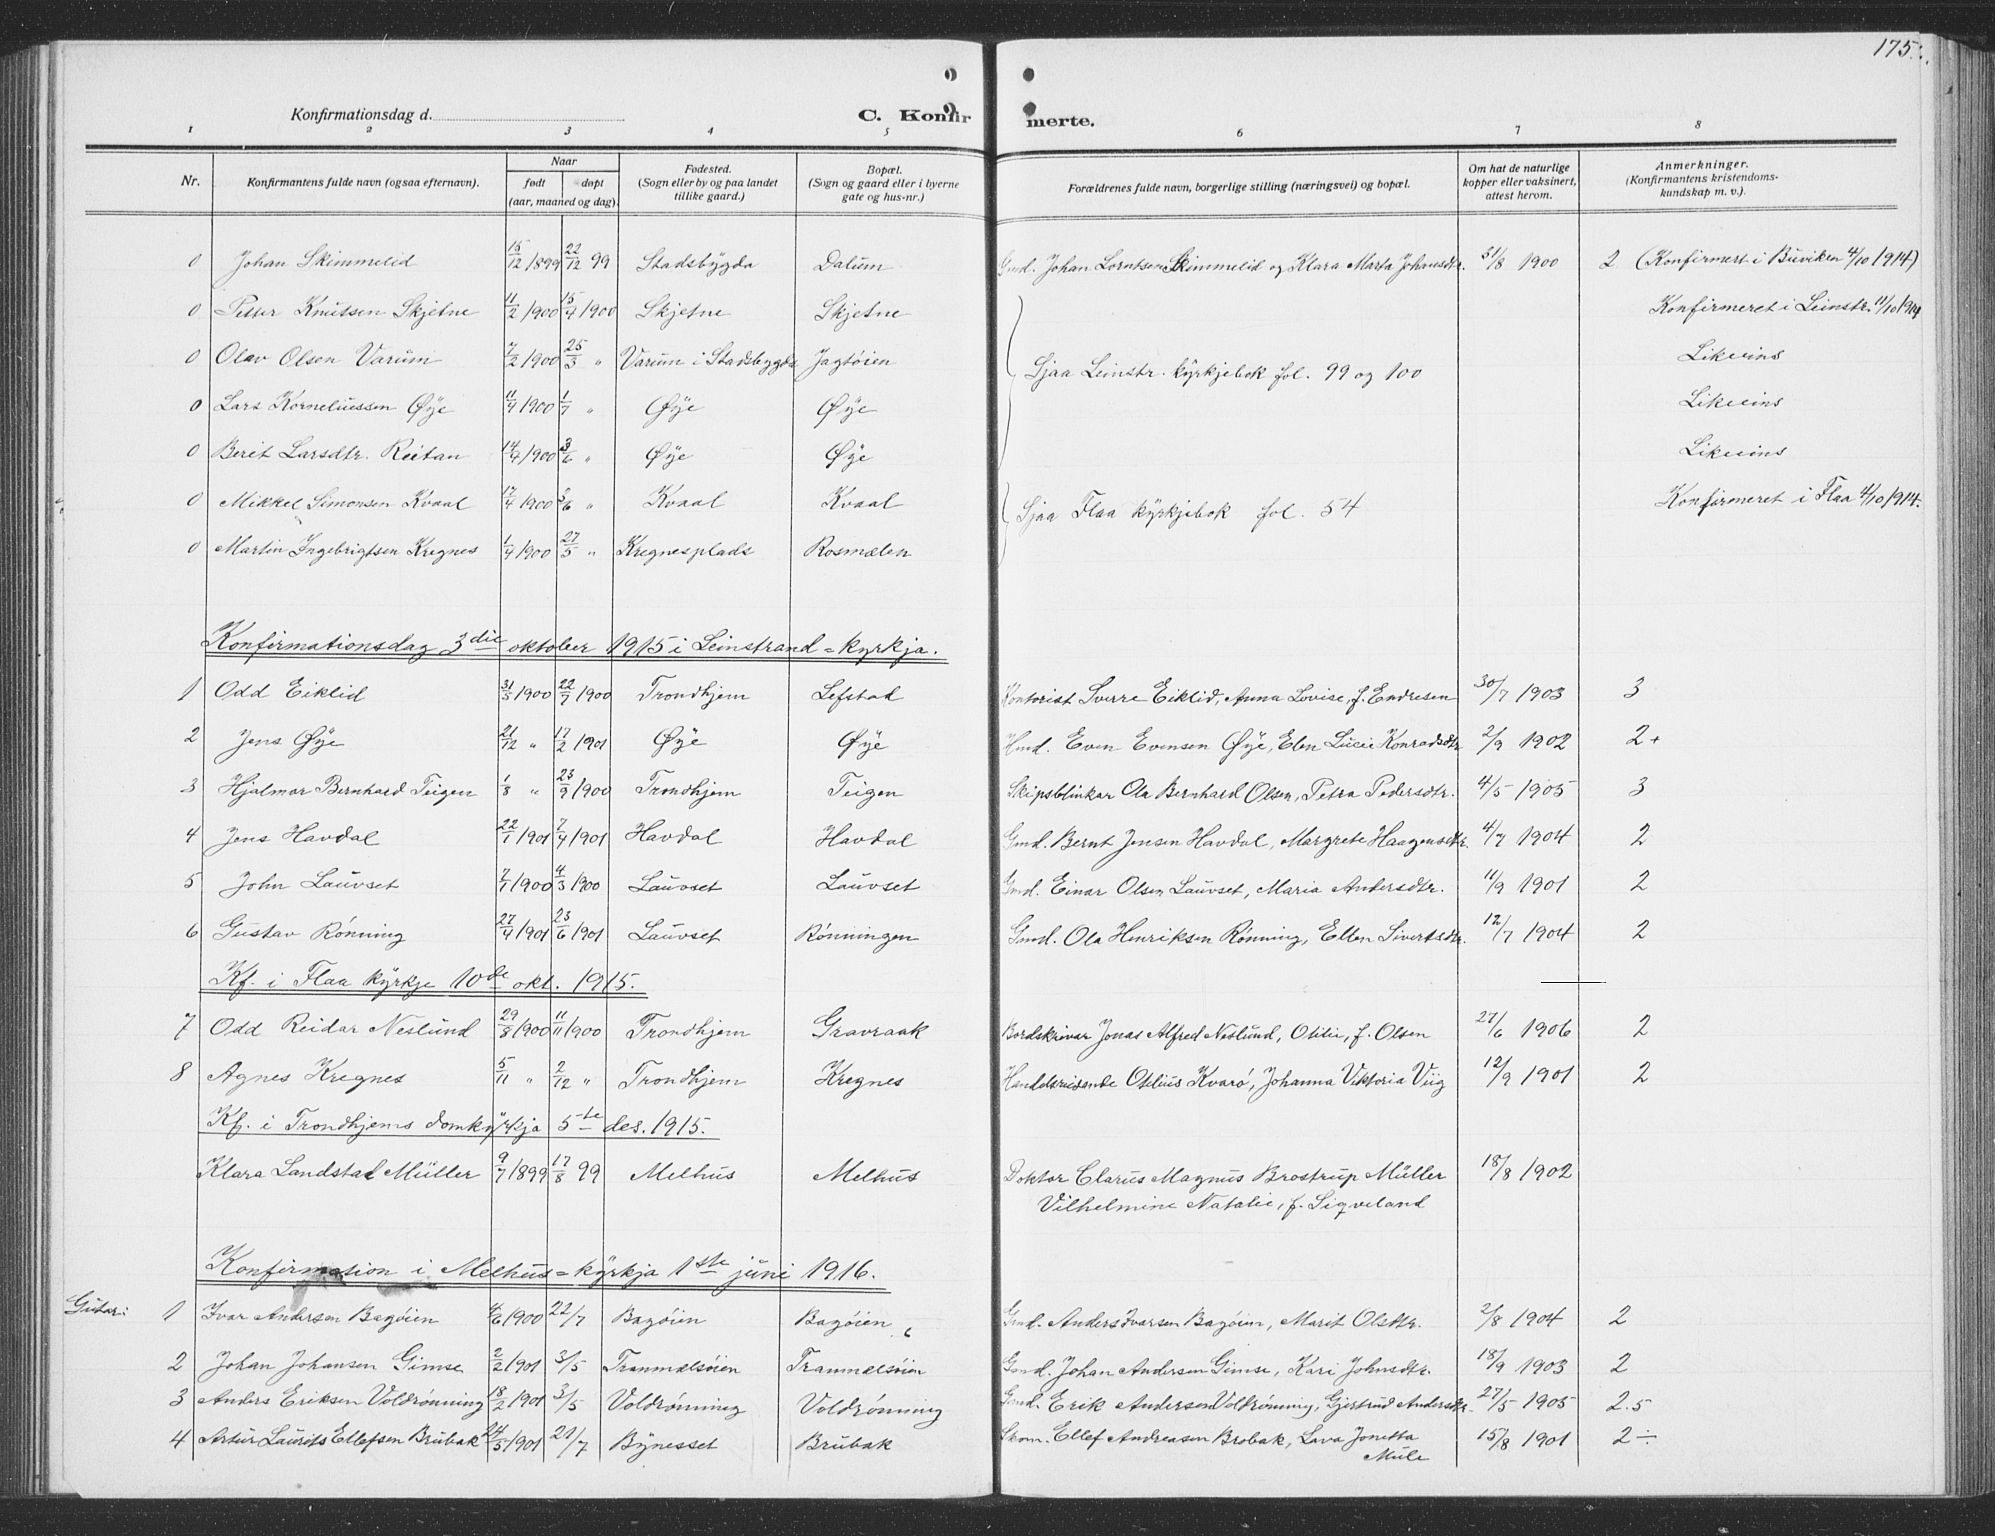 175.
Konfirmationsdag d.
C. Konfirmerte.
1 2 3 4 5 6 7 8
Nr. Konfirmantens fulde navn (ogsaa efternavn). Naar født døpt (aar, maaned og dag). Fødested. (Sogn eller by og paa landet tillike gaard.) Bopæl. (Sogn og gaard eller i byerne gate og hus-nr.) Forældrenes fulde navn, borgerlige stilling (næringsvei) og bopæl. Om hat de naturlige kopper eller vaksinert, attest herom. Anmerkninger. (Konfirmantens kristendomskundskap m. v.).
0 Johan Skimmelid 15/12 1899 22/12 99 Stadsbygda Dalum Gmd. Johan Lorntsen Skimmelid og Klara Marta Johansdtr. 31/8 1900 2 (Konfirmert i Buviken 4/10 1914)
0 Petter Knutsen Skjetne 11/2 1900 15/4 1900 Skjetne Skjetne Konfirmeret i Leinstr. 11/10 1914
0 Olav Olsen Varum 7/2 1900 25/3 " Varum i Stadsbygda Jagtøien Sjaa Leinstr. kyrkjebok fol. 99 og 100 Likeeins
0 Lars Korneliussen Øye 11/4 1900 1/7 " Øye Øye Likeeins
0 Berit Larsdtr. Reitan 14/4 1900 3/6 " Øye Øye Likeeins
0 Mikkel Simonsen Kvaal 17/4 1900 3/6 " Kvaal Kvaal Sjaa Flaa kyrkjebok fol. 54 Konfirmeret i Flaa 4/10 1914.
0 Martin Ingebrigtsen Kregnes 1/4 1900 27/5 " Kregnesplads Rosmælen
Konfirmationsdag 3die oktober 1915 i Leinstrand-kyrkja.
1 Odd Eiklid 31/5 1900 22/7 1900 Trondhjem Lefstad Kontorist Sverre Eiklid, Anna Lovise, f. Endresen 30/7 1903 3
2 Jens Øye 21/12 " 17/2 1901 Øye Øye Gmd. Even Evensen Øye, Elen Lucie Konradsdtr 2/9 1902 2+
3 Hjalmar Bernhard Teigen 1/8 " 23/9 1900 Trondhjem Teigen Skipsblinkar Ola Bernhard Olsen, Petra Pedersdtr. 4/5 1905 3
4 Jens Havdal 22/1 1901 7/4 1901 Havdal Havdal Gmd. Bernt Jensen Havdal, Margrete Haagensdtr. 4/7 1904 2
5 John Lauvset 7/1 1900 4/3 1900 Lauvset Lauvset Gmd. Einar Olsen Lauvset, Maria Andersdtr. 11/9 1901 2
6 Gustav Rønning 27/4 1901 23/6 1901 Lauvset Rønningen Gmd. Ola Henriksen Rønning, Ellen Sivertsdtr. 12/7 1904 2
Kf. i Flaa kyrkje 10de okt. 1915.
7 Odd Reidar Neslund 29/8 1900 11/11 1900 Trondhjem Gravraak Bordskrivar Jonas Alfred Neslund, Otilie, f. Olsen 27/6 1906 2
8 Agnes Kregnes 5/11 " 2/12 " Trondhjem Kregnes Handelsreisande Otilius Kvarø, Johanna Viktoria Viig 12/9 1901 2
Kf. i Trondhjems domkyrkja 5te des. 1915.
Klara Landstad Müller 9/7 1899 17/8 99 Melhus Melhus Doktor Clarus Magnus Brostrup Müller 18/8 1902
Vilhelmine Natalie, f. Siqveland
Konfirmation i Melhus-kyrkja 1ste juni 1916.
Gutar: 1 Ivar Andersen Bagøien 4/6 1900 22/7 Bagøien Bagøien Gmd. Anders Ivarsen Bagøien, Marit Olsdtr. 2/8 1904 2
2 Johan Johansen Gimse 2/2 1901 3/5 Tranmælsøien Tranmælsøien Gmd. Johan Andersen Gimse, Kari Johnsdtr. 18/9 1903 2
3 Anders Eriksen Voldrønning 18/2 1901 3/5 Voldrønning Voldrønning Gmd. Erik Andersen Voldrønning, Gjertrud Andersdtr. 27/5 1905 2.5
4 Artur Laurits Ellefsen Brubak 24/5 1901 21/7 Bynesset Brubak Skom. Ellef Andreasen Brobak, Lava Jonetta 15/8 1901 2÷
Mule